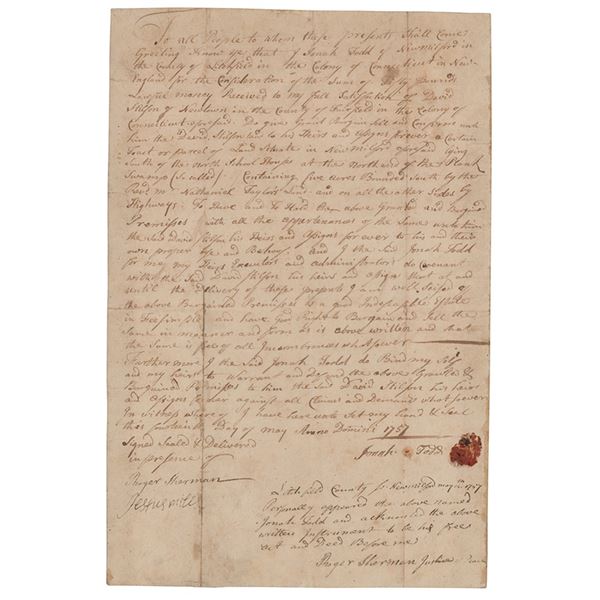 To all People to whom these presents Shall Come
Greeting Know ye that I Jonah Todd of Newmilford in
the County of Litchfield in the Colony of Connecticut in New-
England for the Consideration of the Sum of fifty Pounds
Lawful money Received to my full Satisfaction of David
Stilson of Newtown in the County of Fairfield in the Colony of
Connecticut aforesaid. Do give Grant Bargain Sell and Confirm unto
him the Said David Stilson and to his Heirs and assigns forever a Certain
Tract or parcel of Land Situate in New-milford aforesaid lying
South of the north School House at the north end of the Plank
Swamp (so called) Containing five acres Bounded South by the
Revd. Mr. Nathaniel Taylors Land and on all the other Sides by
Highways. To Have and To Hold the above Granted and Bargained
Premisses with all the appertenances of the Same unto him
the Said David Stilson his Heirs and Assigns forever to his and their
own proper Use and Behoof. and I the Said Jonah Todd
for me, my Heirs Executors and administrators do Covenant
with the Said David Stilson his heirs and assigns that at and
until the Delivery of these presents I am well Seised of
the above Bargained Premisses as a good Indefeasible Estate
in Feesimple and have Good Right to Bargain and Sell the
Same in manner and form as is above written and that
the Same is free of all Incumbrances whatsoever
Furthermore I the Said Jonah Todd do Bind my Self
and my heirs to Warrant and Defend the above Granted &
Bargained Premisses to him the Said David Stilson his heirs
and assigns against all Claims and Demands whatsoever
In Witness whereof I have hereunto Set my hand & Seal
this fourteenth Day of may Anno Domini 1757
Signed Seald & Delivered
in presence of
Jonah Todd
Roger Sherman
Litchfield County Ss Newmilford may 1757
Personally appeared the above named
Jonah Todd and acknowledged the above
written Instrument to be his free
act and Deed Before me
Roger Sherman Justice Peace